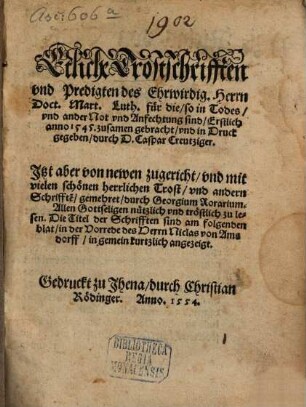 Asc. 606 a
1902
Etliche Trostschrifften
vnd Predigten des Ehrwirdig. Herrn
Doct. Mart. Luth. für die/so in Todes/
vnd ander Not vnd Anfechtung sind/Erstlich
anno 1545. zusamen gebracht/vnd in Druck
gegeben/durch D. Caspar Creutziger.
Itzt aber von newen zugericht/vnd mit
vielen schönen herrlichen Trost/vnd andern
Schrifftē/gemehret/durch Georgium Rorarium.
Allen Gottseligen nützlich vnd tröstlich zu le-
sen. Die Titel der Schrifften sind am folgenden
blat/in der Vorrede des Herrn Niclas von Ams
dorff/in gemein kurtzlich angezeigt.
Gedruckt zu Jhena/durch Christian
Rödinger. Anno. 1554.
BIBLIOTHECA
REGIA
MONACENSIS.